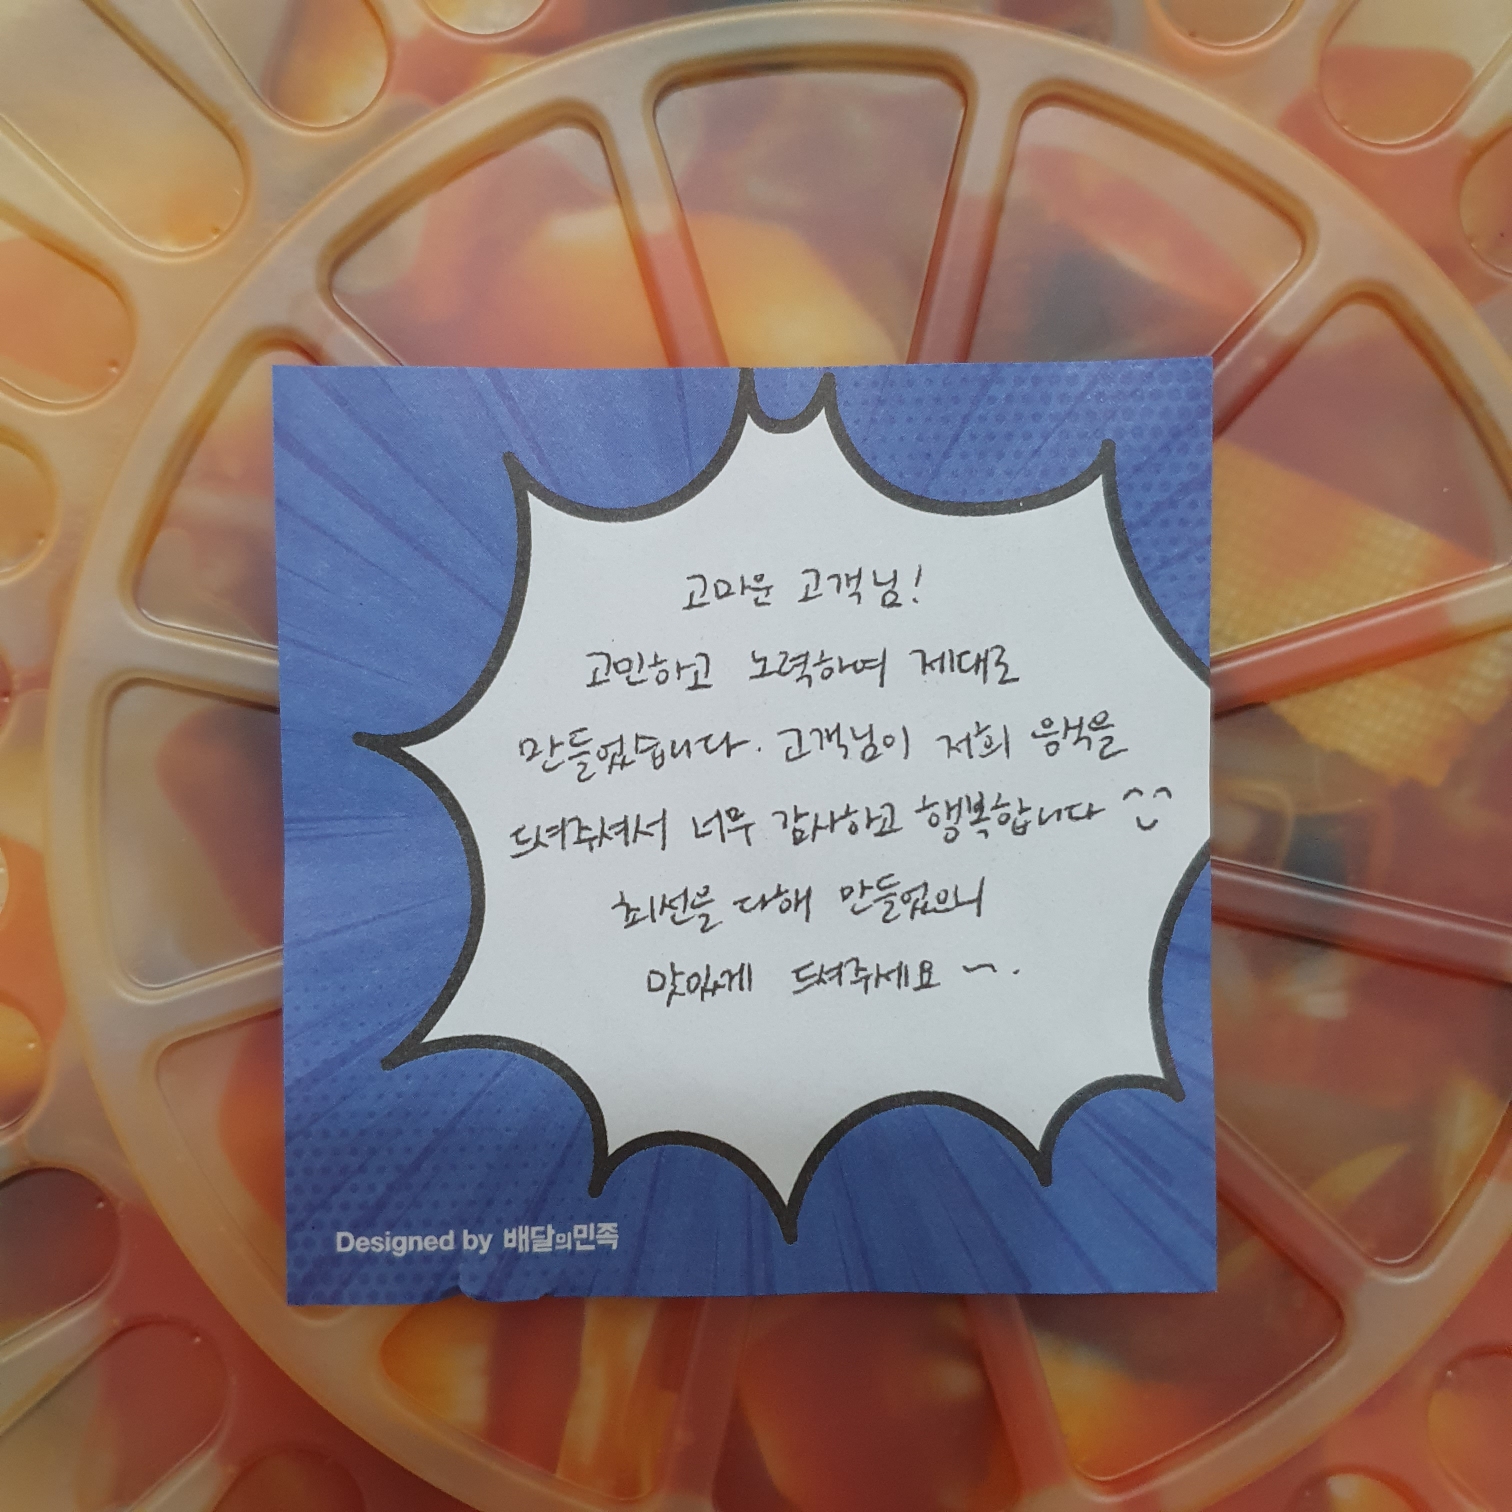 고마운 고객님!
고민하고 노력하여 제대로
만들었습니다. 고객님이 저희 음식을
드셔주셔서 너무 감사하고 행복합니다 ^^
최선을 다해 만들었으니
맛있게 드셔주세요 ~.
Designed by 배달의민족